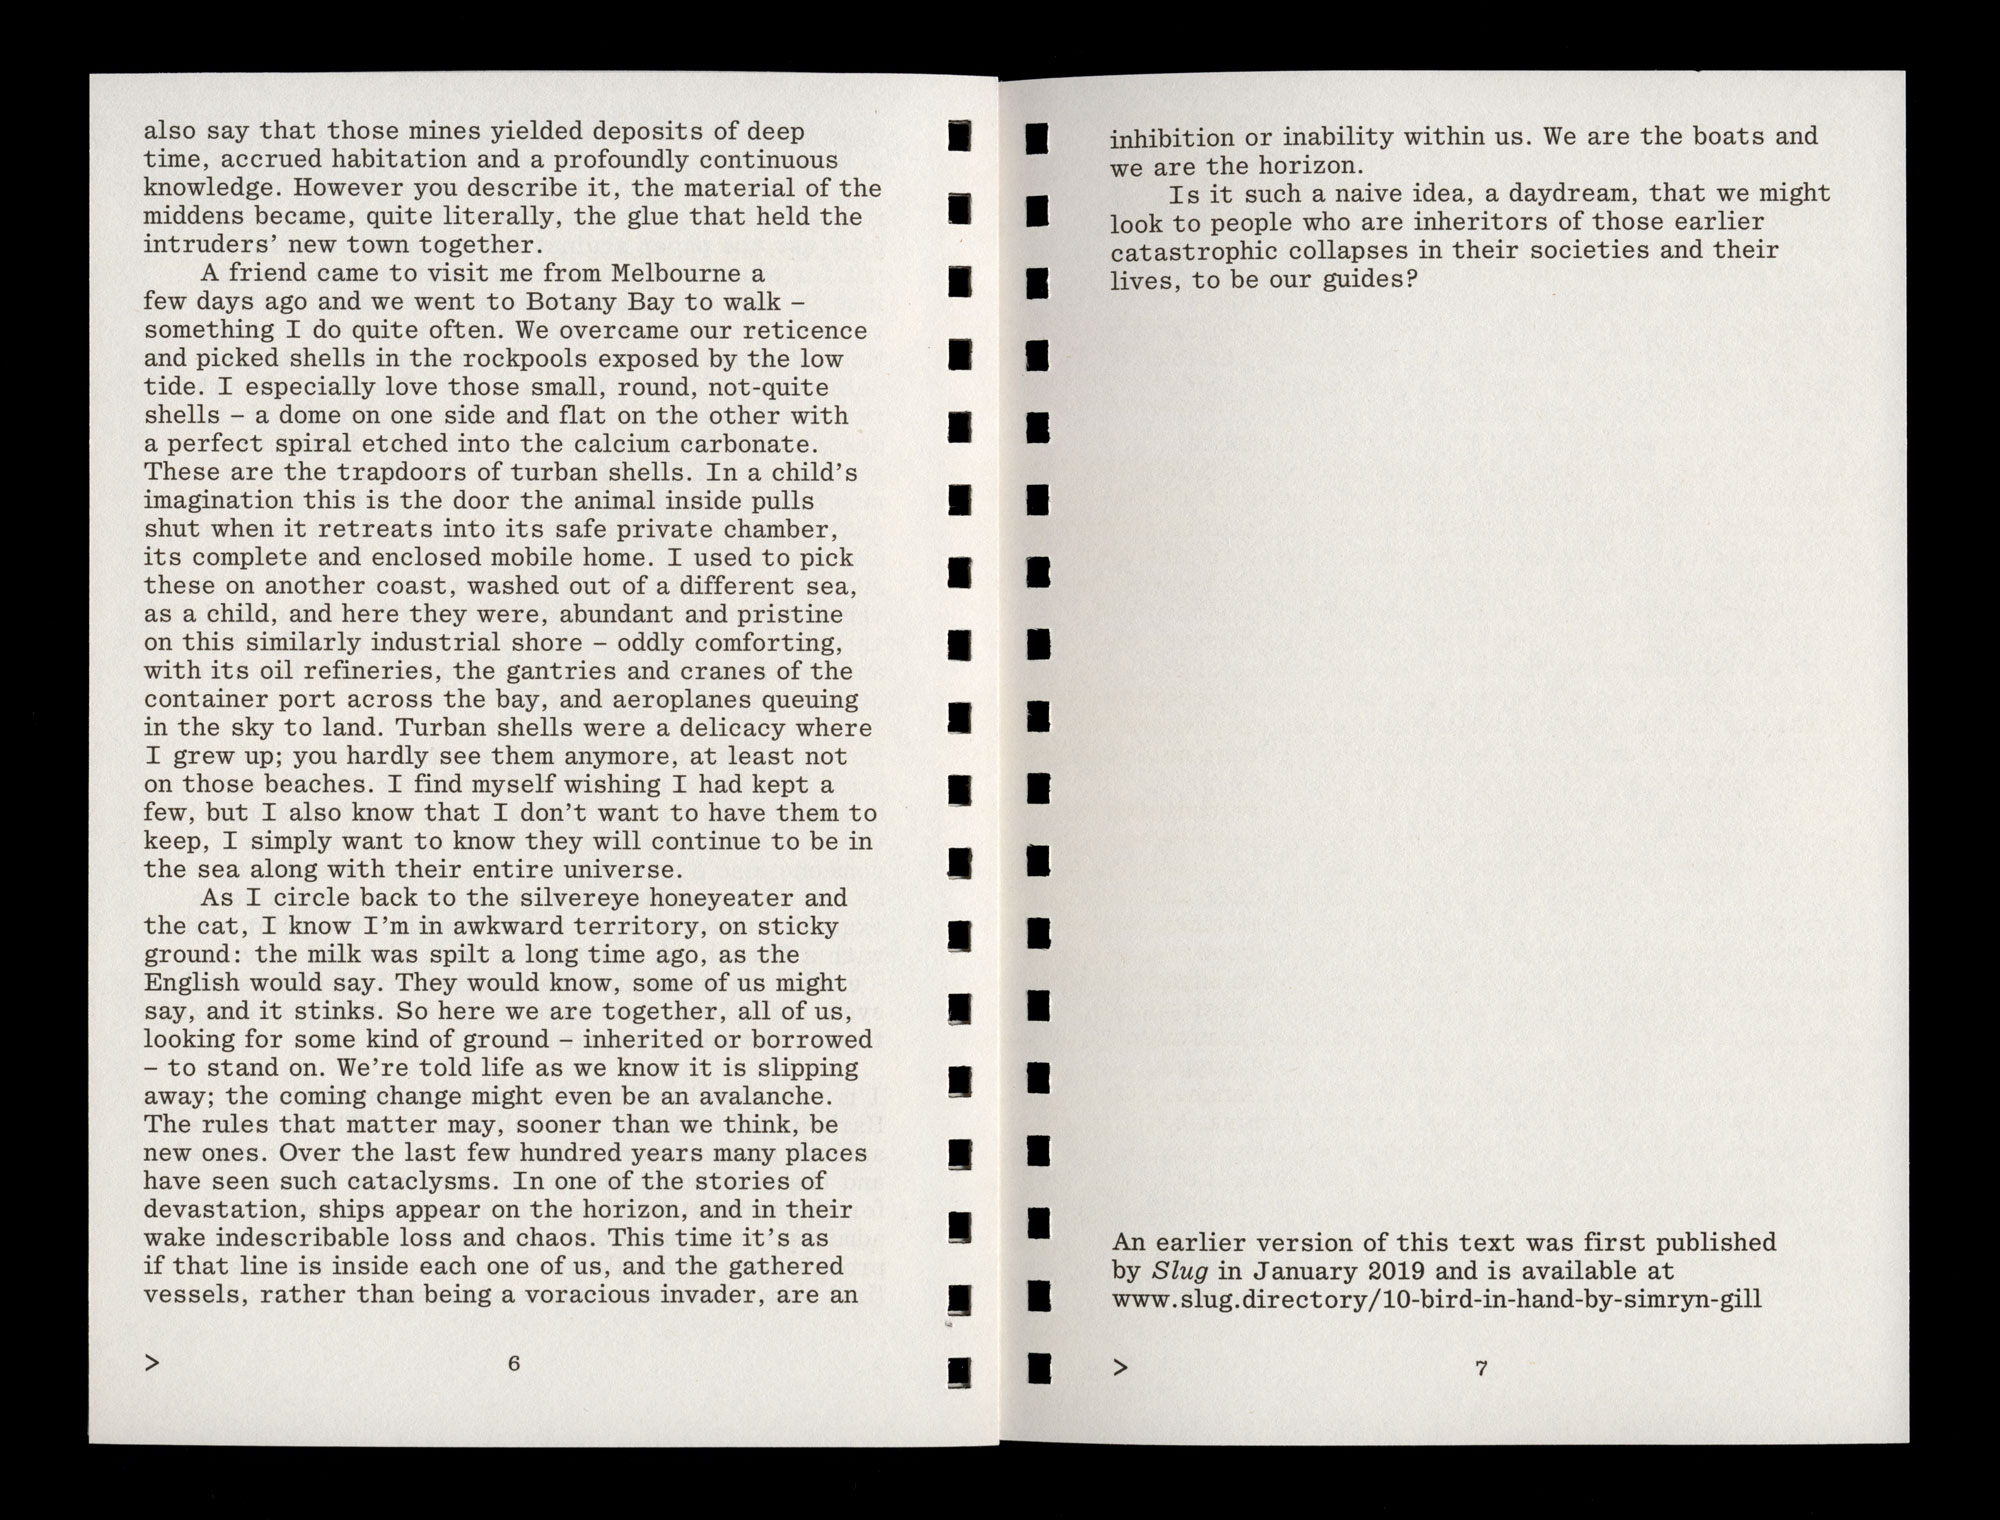 also say that those mines yielded deposits of deep
time, accrued habitation and a profoundly continuous
knowledge. However you describe it, the material of the
middens became, quite literally, the glue that held the
intruders’ new town together.
A friend came to visit me from Melbourne a
few days ago and we went to Botany Bay to walk –
something I do quite often. We overcame our reticence
and picked shells in the rockpools exposed by the low
tide. I especially love those small, round, not-quite
shells – a dome on one side and flat on the other with
a perfect spiral etched into the calcium carbonate.
These are the trapdoors of turban shells. In a child’s
imagination this is the door the animal inside pulls
shut when it retreats into its safe private chamber,
its complete and enclosed mobile home. I used to pick
these on another coast, washed out of a different sea,
as a child, and here they were, abundant and pristine
on this similarly industrial shore – oddly comforting,
with its oil refineries, the gantries and cranes of the
container port across the bay, and aeroplanes queuing
in the sky to land. Turban shells were a delicacy where
I grew up; you hardly see them anymore, at least not
on those beaches. I find myself wishing I had kept a
few, but I also know that I don’t want to have them to
keep, I simply want to know they will continue to be in
the sea along with their entire universe.
As I circle back to the silvereye honeyeater and
the cat, I know I’m in awkward territory, on sticky
ground: the milk was spilt a long time ago, as the
English would say. They would know, some of us might
say, and it stinks. So here we are together, all of us,
looking for some kind of ground – inherited or borrowed
– to stand on. We’re told life as we know it is slipping
away; the coming change might even be an avalanche.
The rules that matter may, sooner than we think, be
new ones. Over the last few hundred years many places
have seen such cataclysms. In one of the stories of
devastation, ships appear on the horizon, and in their
wake indescribable loss and chaos. This time it’s as
if that line is inside each one of us, and the gathered
vessels, rather than being a voracious invader, are an
> 6
inhibition or inability within us. We are the boats and
we are the horizon.
Is it such a naive idea, a daydream, that we might
look to people who are inheritors of those earlier
catastrophic collapses in their societies and their
lives, to be our guides?
An earlier version of this text was first published
by Slug in January 2019 and is available at
www.slug.directory/10-bird-in-hand-by-simryn-gill
> 7